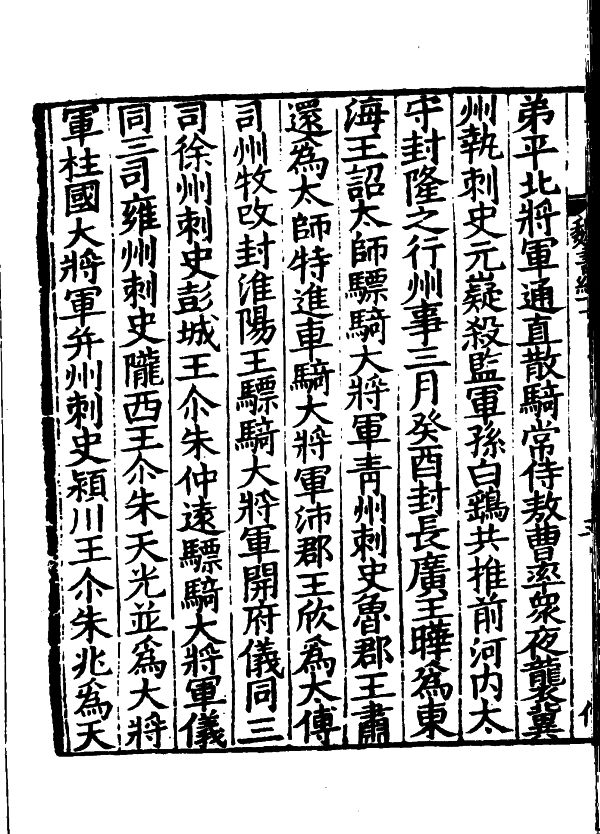 弟平北將軍通直散騎常侍敖曹率衆夜襲冀
州執刺史元嶷殺監軍孫白鷂共推前河内太
守封隆之行州事三月癸酉封長廣王曄爲東
海王詔太師驃騎大將軍青州刺史魯郡王肅
還爲太師特進車騎大將軍沛郡王欣爲太傅
司州牧改封淮陽王驃騎大將軍開府儀同三
司徐州刺史彭城王尒朱仲遠驃騎大將軍儀
同三司雍州刺史隴西王尒朱天光並爲大將
軍柱國大將軍并州刺史潁川王尒朱兆爲天